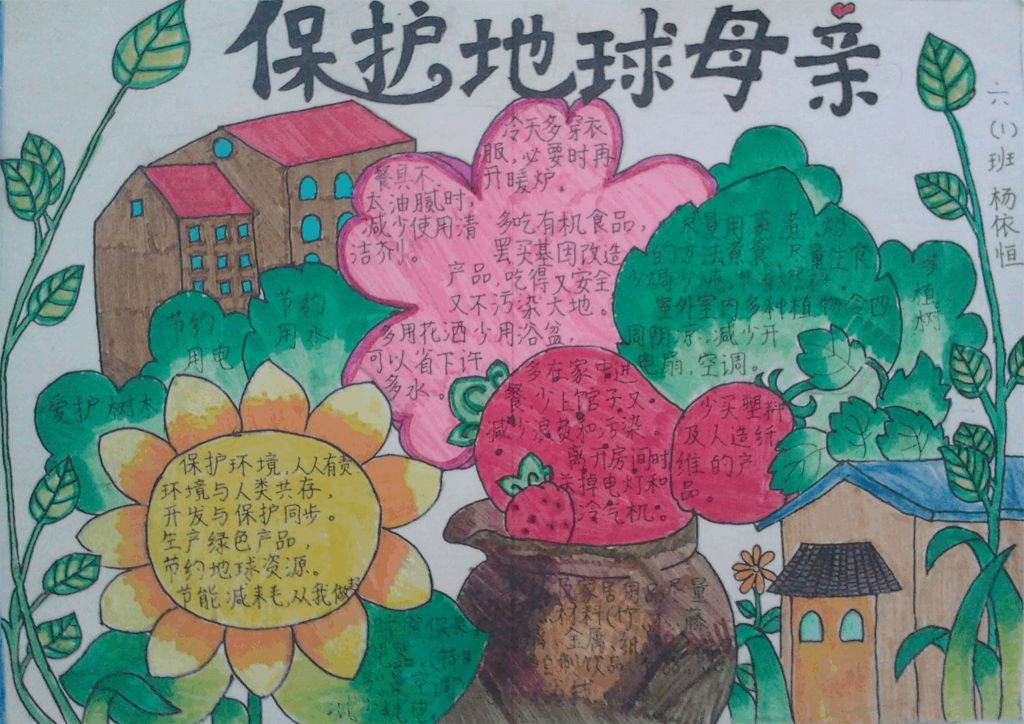 保护地球母亲
六(1)班 杨依恒
冷天多穿衣
服,必要时再
开暖炉。
餐具不
太油腻时,
减少使用清
洁剂。
多吃有机食品,
罢买基因改造
产品,吃得又安全
又不污染大地。
多用花洒少用浴盆,
可以省下许
多水。
尽量用蒸煮
的方法煮食、尽量生食
室外室内多种植物令四
周阴凉,减少开
电扇,空调。
多
植
树
节约
用电
节约
用水
爱护树木
多在家中进
餐,少上馆子又
减少浪费和污染。
离开房间时
掉电灯和
冷气机。
少买塑料
及人造纤
维的产
品。
保护环境,人人有责
环境与人类共存,
开发与保护同步。
生产绿色产品,
节约地球资源、
节能减耗,从我做起
家居用 尽量
材料(竹、藤
金属、纸